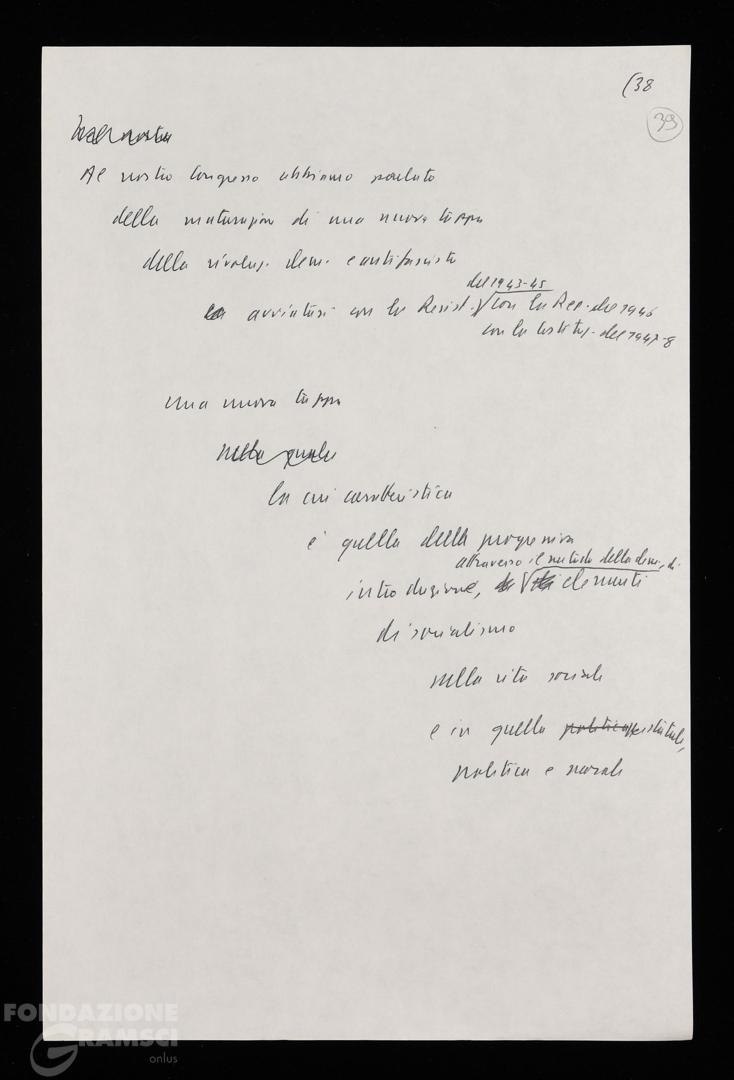 (38
39
Al nostro Congresso abbiamo parlato
della maturazione di una nuova tappa
della rivoluz. dem. e antifascista
del 1943-45
avviatasi con la Resist. con la Rep. del 1946
con la Costituz. del 1947-8
una nuova tappa
nella quale
la cui caratteristica
è quella della progressiva
attraverso il metodo della dem., di
introduzione, elementi
di socialismo
nella vita sociale
e in quella politica statale,
politica e morale
FONDAZIONE
GRAMSCI
onlus